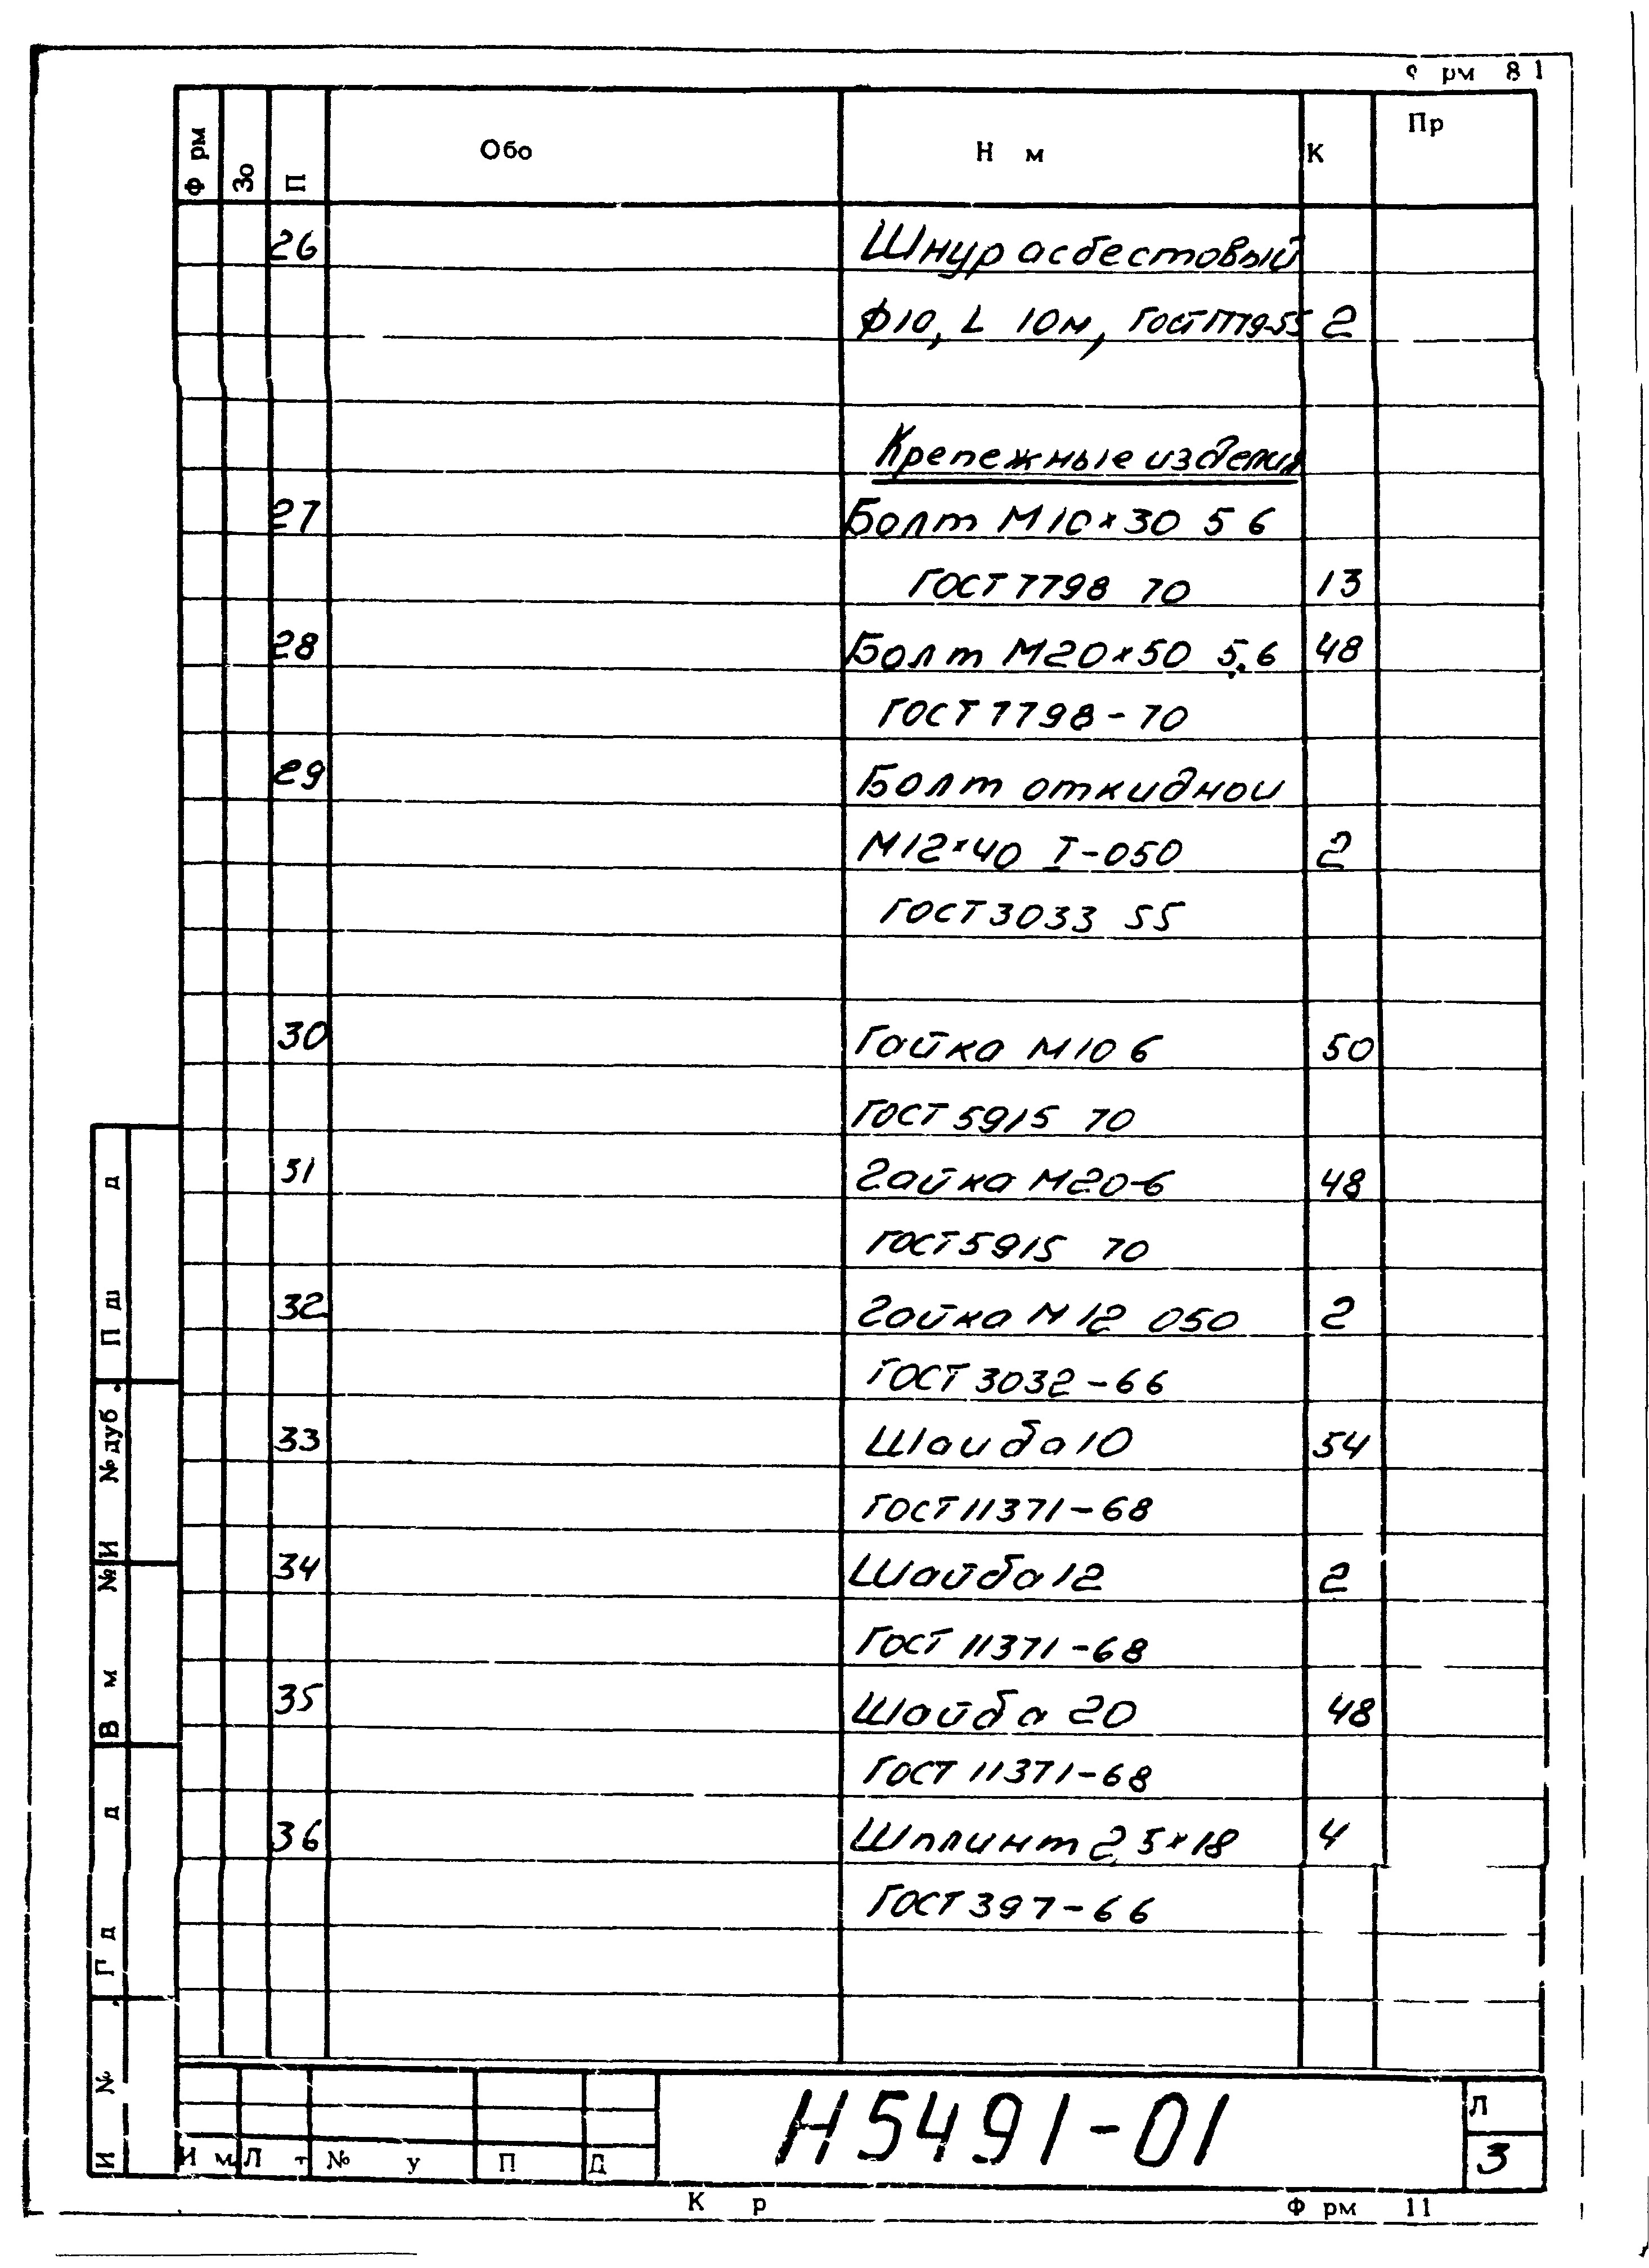 рм 81
Ф рм Зо П Обо Н м К Пр
26 Шнур асбестовый
ф10, L 10м, ГОСТ1779-55 2
Крепежные изделия
27 Болт М10×30 5 6
ГОСТ 7798 70 13
28 Болт М20×50 5.6 48
ГОСТ 7798-70
29 Болт откиднои
М12×40 I-050 2
ГОСТ 3033 55
30 Гайка М10 6 50
ГОСТ 5915 70
31 Гайка М20-6 48
ГОСТ 5915 70
32 Гайка М12 050 2
ГОСТ 3032-66
33 Шаиба 10 54
ГОСТ 11371-68
34 Шайба 12 2
ГОСТ 11371-68
35 Шайба 20 48
ГОСТ 11371-68
36 Шплинт 2,5×18 4
ГОСТ 397-66
П ш д
И № дуб.
В м №
Г д д
И №
И м Л т № у П Д
Н5491-01
Л
3
К р Ф рм 11